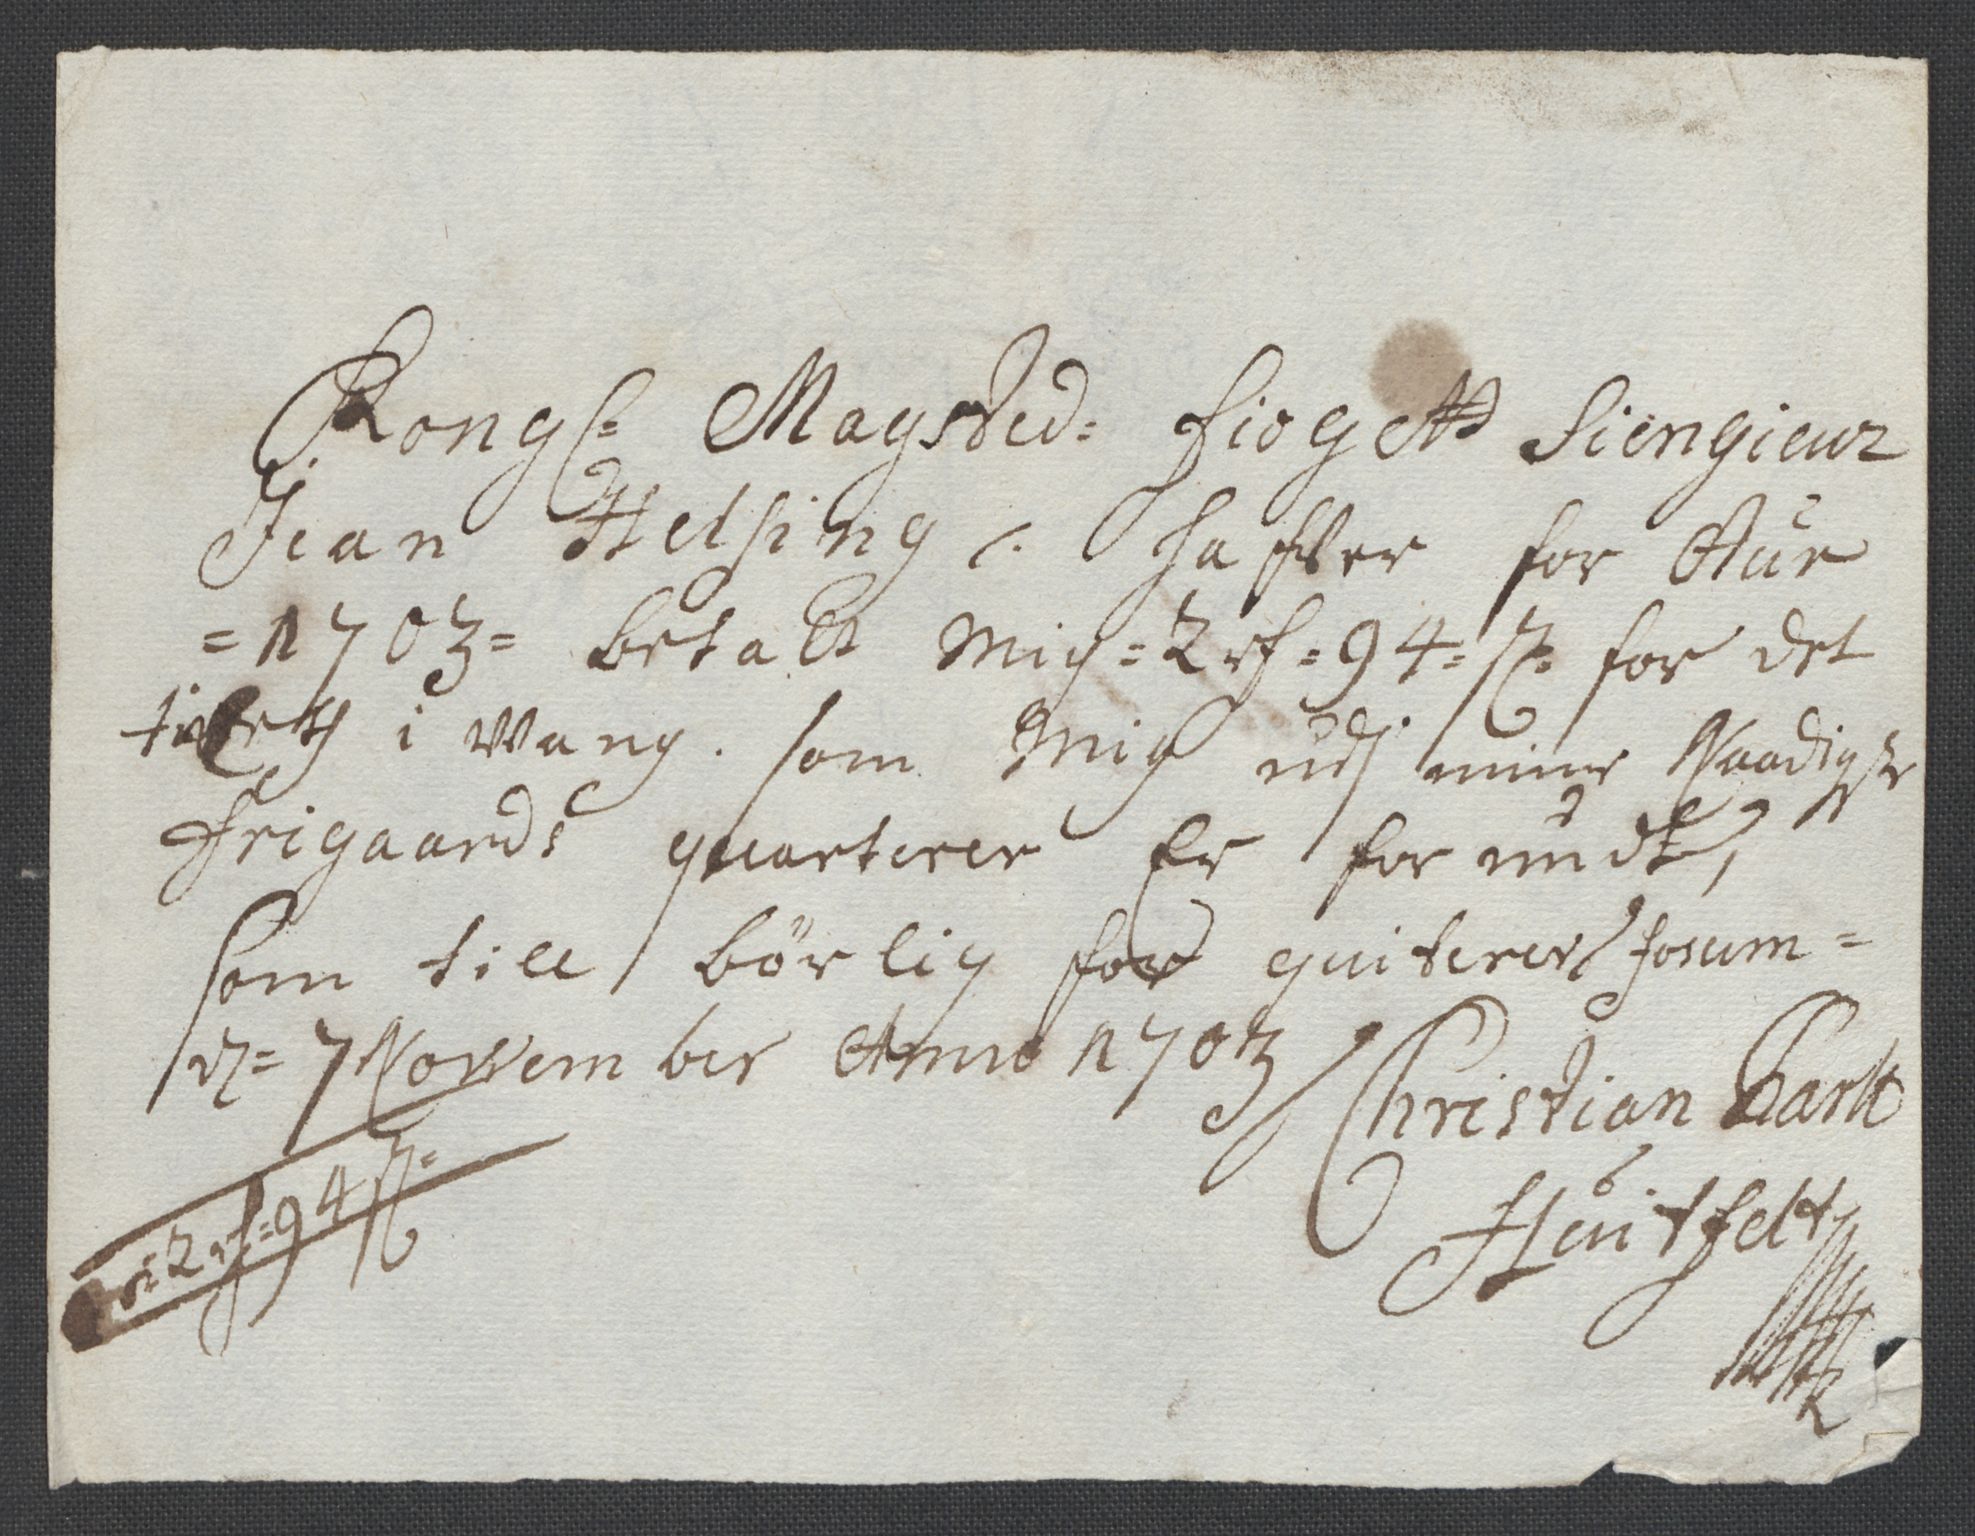 Kongl: Maÿsted: fioget Siengieur
Jean Helsing /. hafver for Aür
=1703= betalt Mig =2 rf =94= ſſ: for det
i Wang. som Mig udj mine Naadigste
frigaards quarterer Er forundt,
Som till börlig for quiterer
d= 7 November Anno 1703
Christian Barth
Hüitfelt
2 rf =94 ſſ=